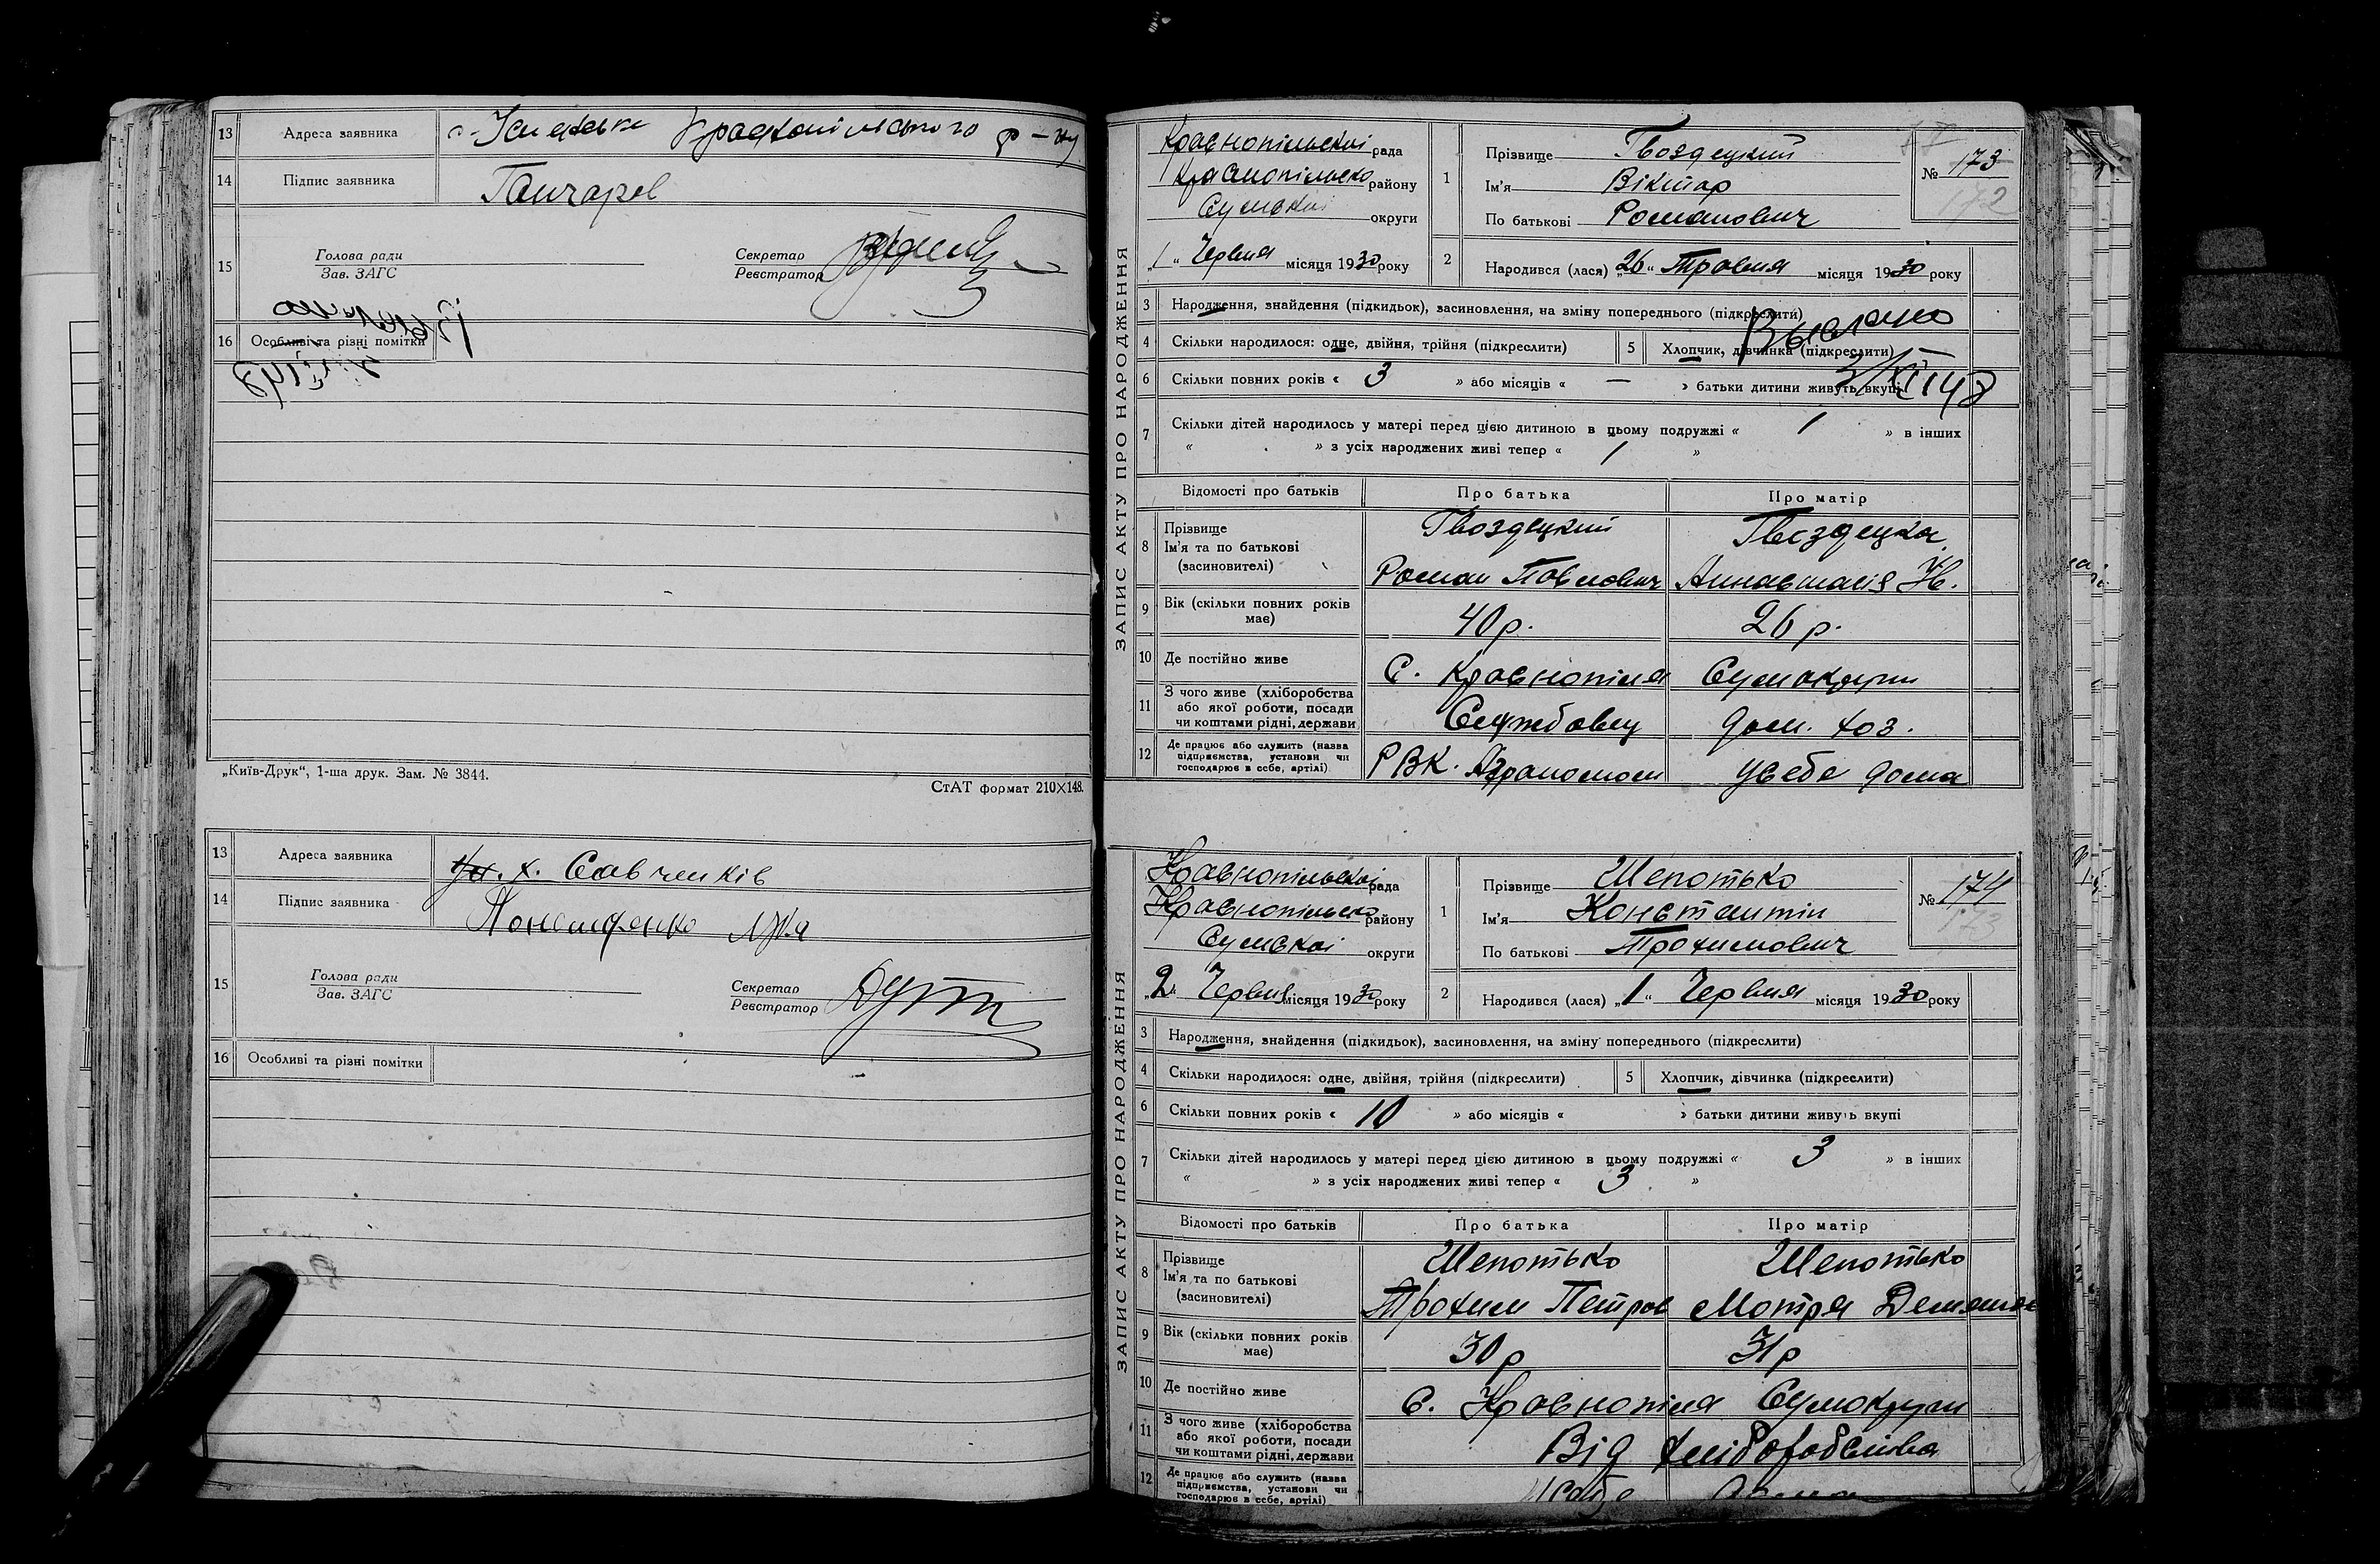 13 Адреса заявника
14 Підпис заявника Гончаров
15 Голова ради
Зав. ЗАГС
Секретар
Реєстратор
16 Особливі та різні помітки
„Київ-Друк“, 1-ша друк. Зам. № 3844.
СтАТ формат 210×148.
13 Адреса заявника х. Савченків
14 Підпис заявника
15 Голова ради
Зав. ЗАГС
Секретар
Реєстратор
16 Особливі та різні помітки
ЗАПИС АКТУ ПРО НАРОДЖЕННЯ
Краснопільської рада
Краснопілько району
Сумської округи
„1“ Червня місяця 1930 року
1 Прізвище Гвоздецкий
Ім'я Віктор
По батькові Романович
№ 173
172
2 Народився (лася) „26“ Травня місяця 1930 року
3 Народження, знайдення (підкидьок), засиновлення, на зміну попереднього (підкреслити)
4 Скільки народилося: одне, двійня, трійня (підкреслити) 5 Хлопчик, дівчинка (підкреслити)
6 Скільки повних років « 3 » або місяців « — » батьки дитини живуть вкупі
7 Скільки дітей народилось у матері перед цією дитиною в цьому подружжі « 1 » в інших
« » з усіх народжених живі тепер « 1 »
Відомості про батьків Про батька Про матір
8 Прізвище Гвоздецкий Гвоздецка
Ім'я та по батькові
(засиновителі) Роман Павлович Анастасія
9 Вік (скільки повних років має) 40 р. 26 р.
10 Де постійно живе С. Краснопілля Сумокруги
11 З чого живе (хліборобства
або якої роботи, посади
чи коштами рідні, держави Службовец дом. хоз.
12 Де працює або служить (назва
підприємства, установи чи
господарює в себе, артілі) РВК. Агрономом у себе дома
ЗАПИС АКТУ ПРО НАРОДЖЕННЯ
Краснопільскої рада
Краснопілько району
Сумської округи
„2“ Червня місяця 1930 року
1 Прізвище Шепотько
Ім'я Константин
По батькові Трохимович
№ 174
173
2 Народився (лася) „1“ Червня місяця 1930 року
3 Народження, знайдення (підкидьок), засиновлення, на зміну попереднього (підкреслити)
4 Скільки народилося: одне, двійня, трійня (підкреслити) 5 Хлопчик, дівчинка (підкреслити)
6 Скільки повних років « 10 » або місяців « » батьки дитини живуть вкупі
7 Скільки дітей народилось у матері перед цією дитиною в цьому подружжі « 3 » в інших
« » з усіх народжених живі тепер « 3 »
Відомості про батьків Про батька Про матір
8 Прізвище Шепотько Шепотько
Ім'я та по батькові
(засиновителі) Трохим Петров Мотря
9 Вік (скільки повних років має) 30 р 31 р
10 Де постійно живе С. Краснопілля Сумокруги
11 З чого живе (хліборобства
або якої роботи, посади
чи коштами рідні, держави Від хліборобства
12 Де працює або служить (назва
підприємства, установи чи
господарює в себе, артілі)